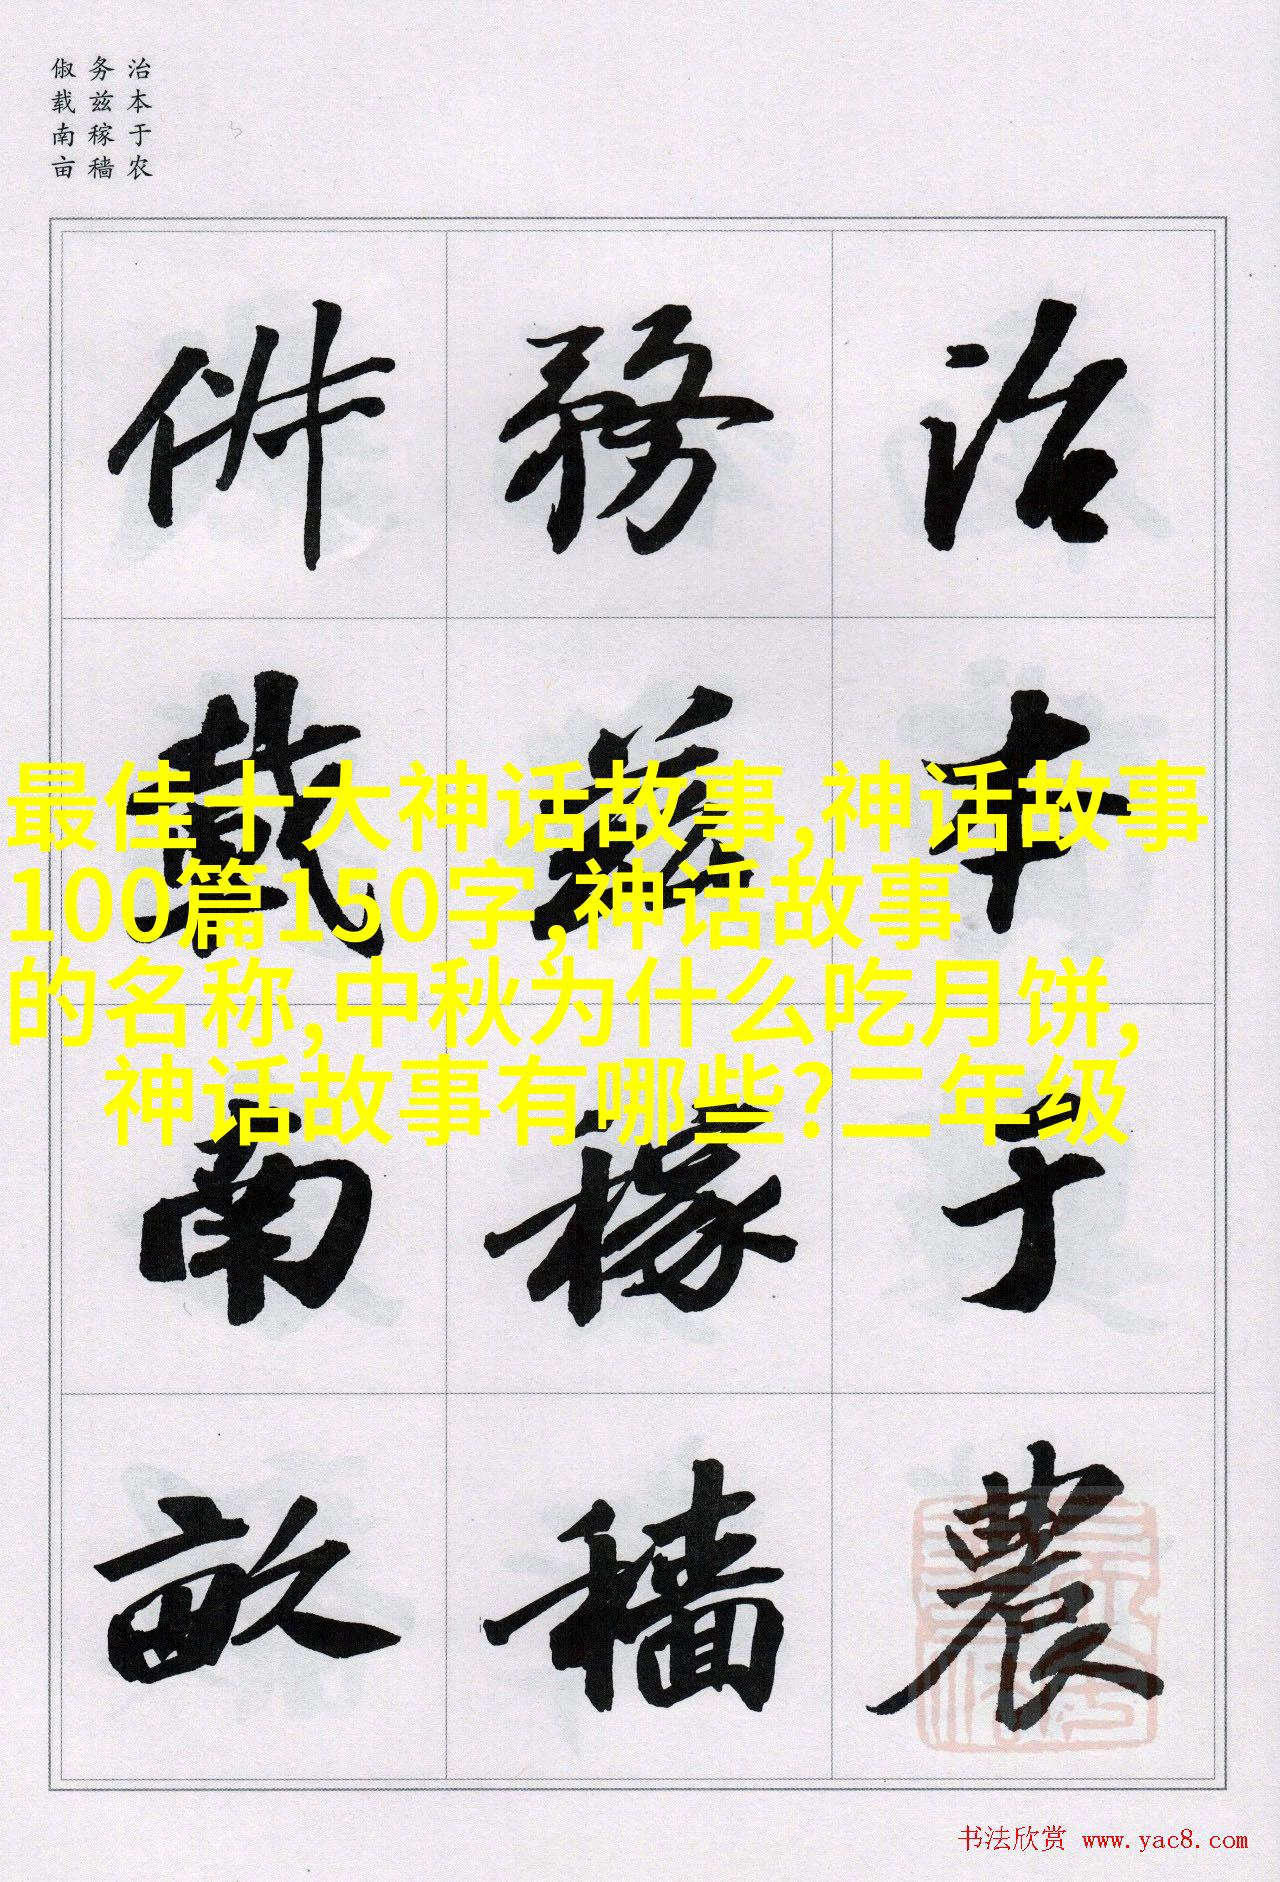 治本于农
务兹稼穑
俶载南亩
治本于農
務茲稼穡
俶載南畝
最佳十大神话故事,神话故事
100篇150字,神话故事
的名称,中秋为什么吃月饼,
神话故事有哪些?二年级
书法欣赏 www.yac8.com